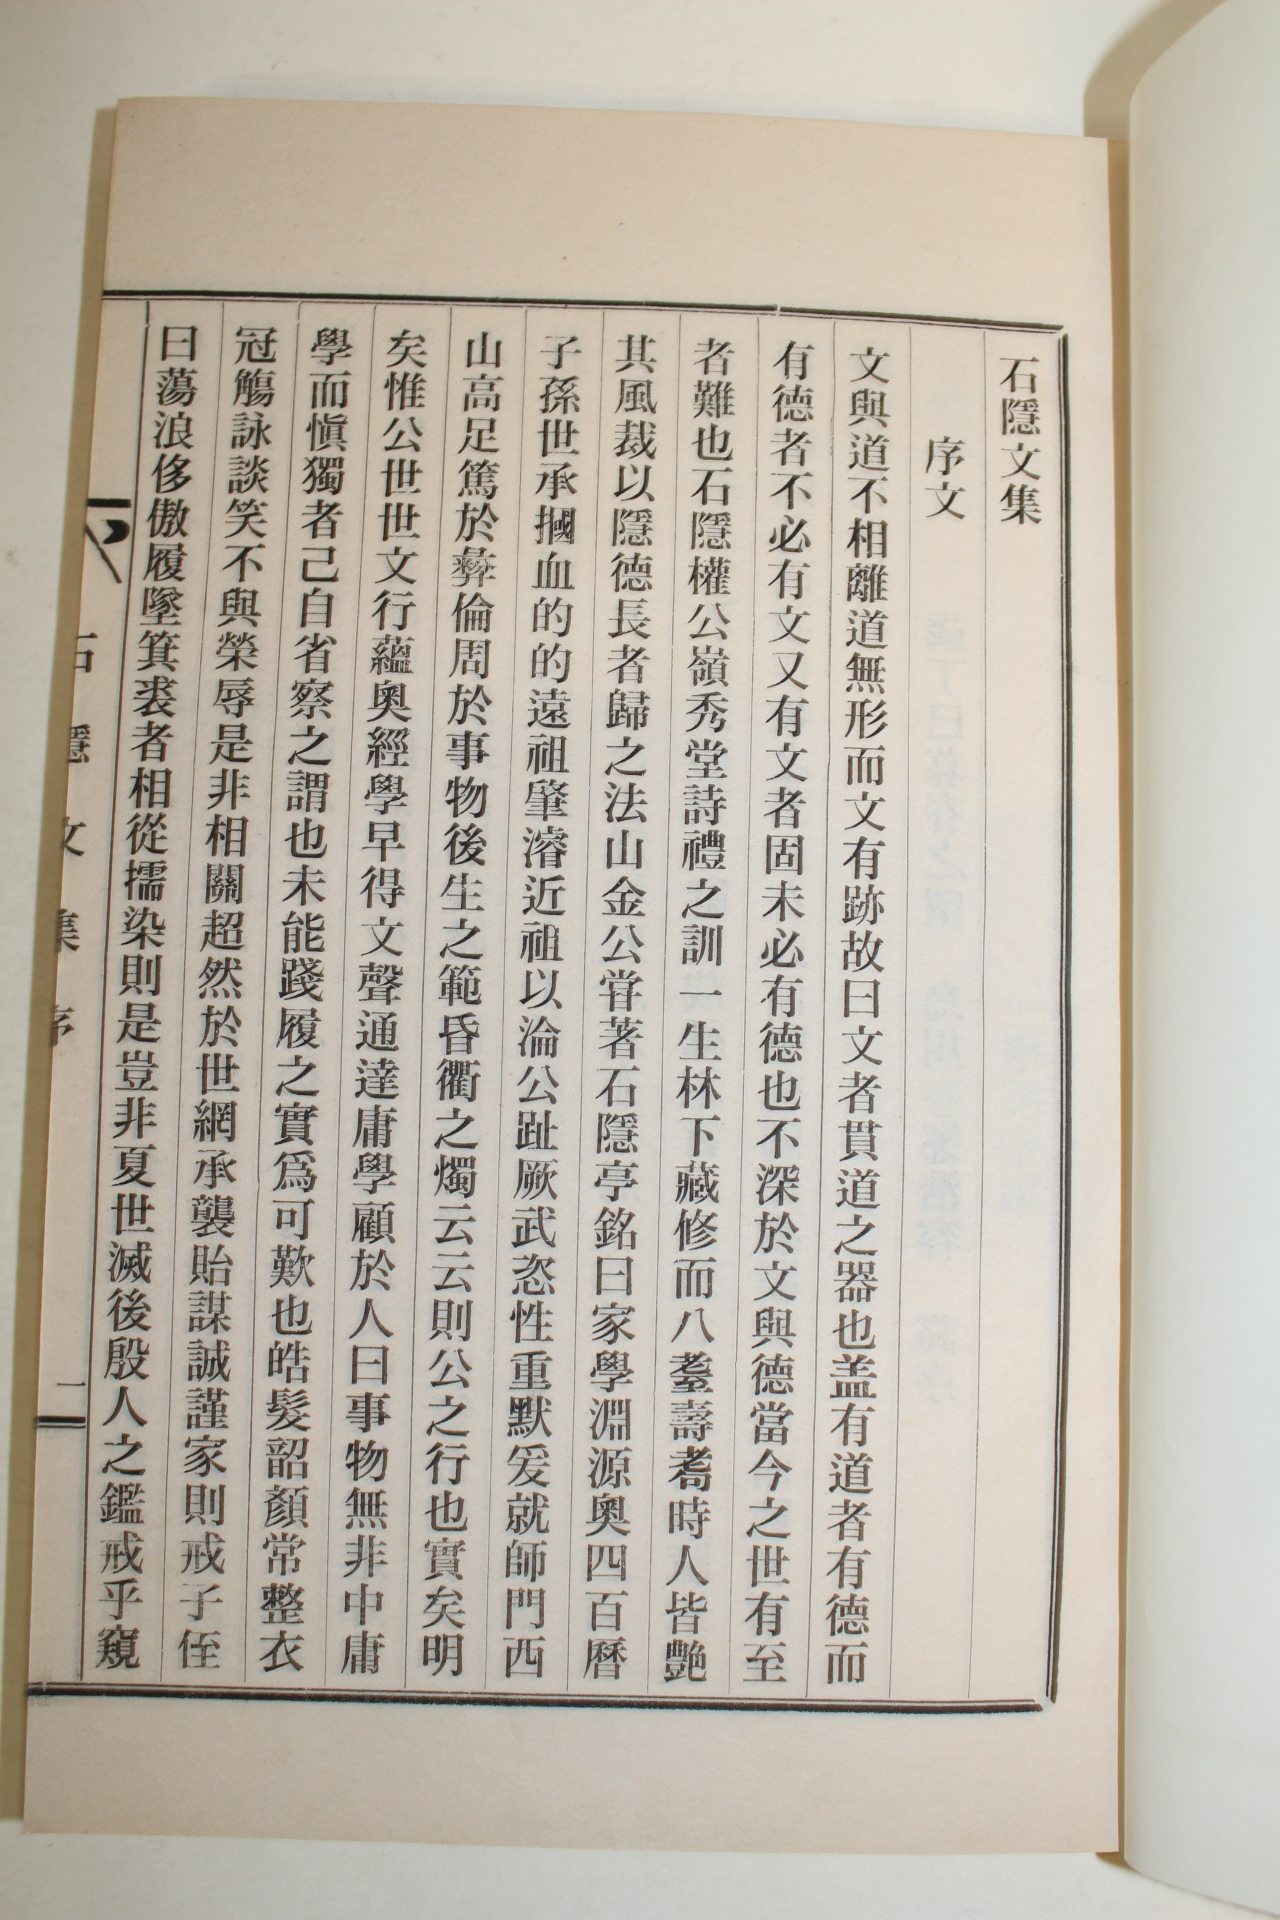 石隱文集
序文
文與道不相離道無形而文有跡故曰文者貫道之器也盖有道者有德而
有德者不必有文又有文者固未必有德也不深於文與德當今之世有至
者難也石隱權公嶺秀堂詩禮之訓一生林下藏修而八耋壽耈時人皆艶
其風裁以隱德長者歸之法山金公甞著石隱亭銘曰家學淵源奥四百曆
子孫世承摑血的的遠祖肇濬近祖以淪公趾厥武恣性重默爰就師門西
山高足篤於彝倫周於事物後生之範昏衢之燭云云則公之行也實矣明
矣惟公世世文行蘊奥經學早得文聲通達庸學顧於人曰事物無非中庸
學而愼獨者己自省察之謂也未能踐履之實爲可歎也皓髮韶顏常整衣
冠觴詠談笑不與榮辱是非相關超然於世網承襲貽謀誠謹家則戒子侄
曰蕩浪侈傲履墜箕裘者相從擩染則是豈非夏世滅後殷人之鑑戒乎窺
石隱文集 序 一